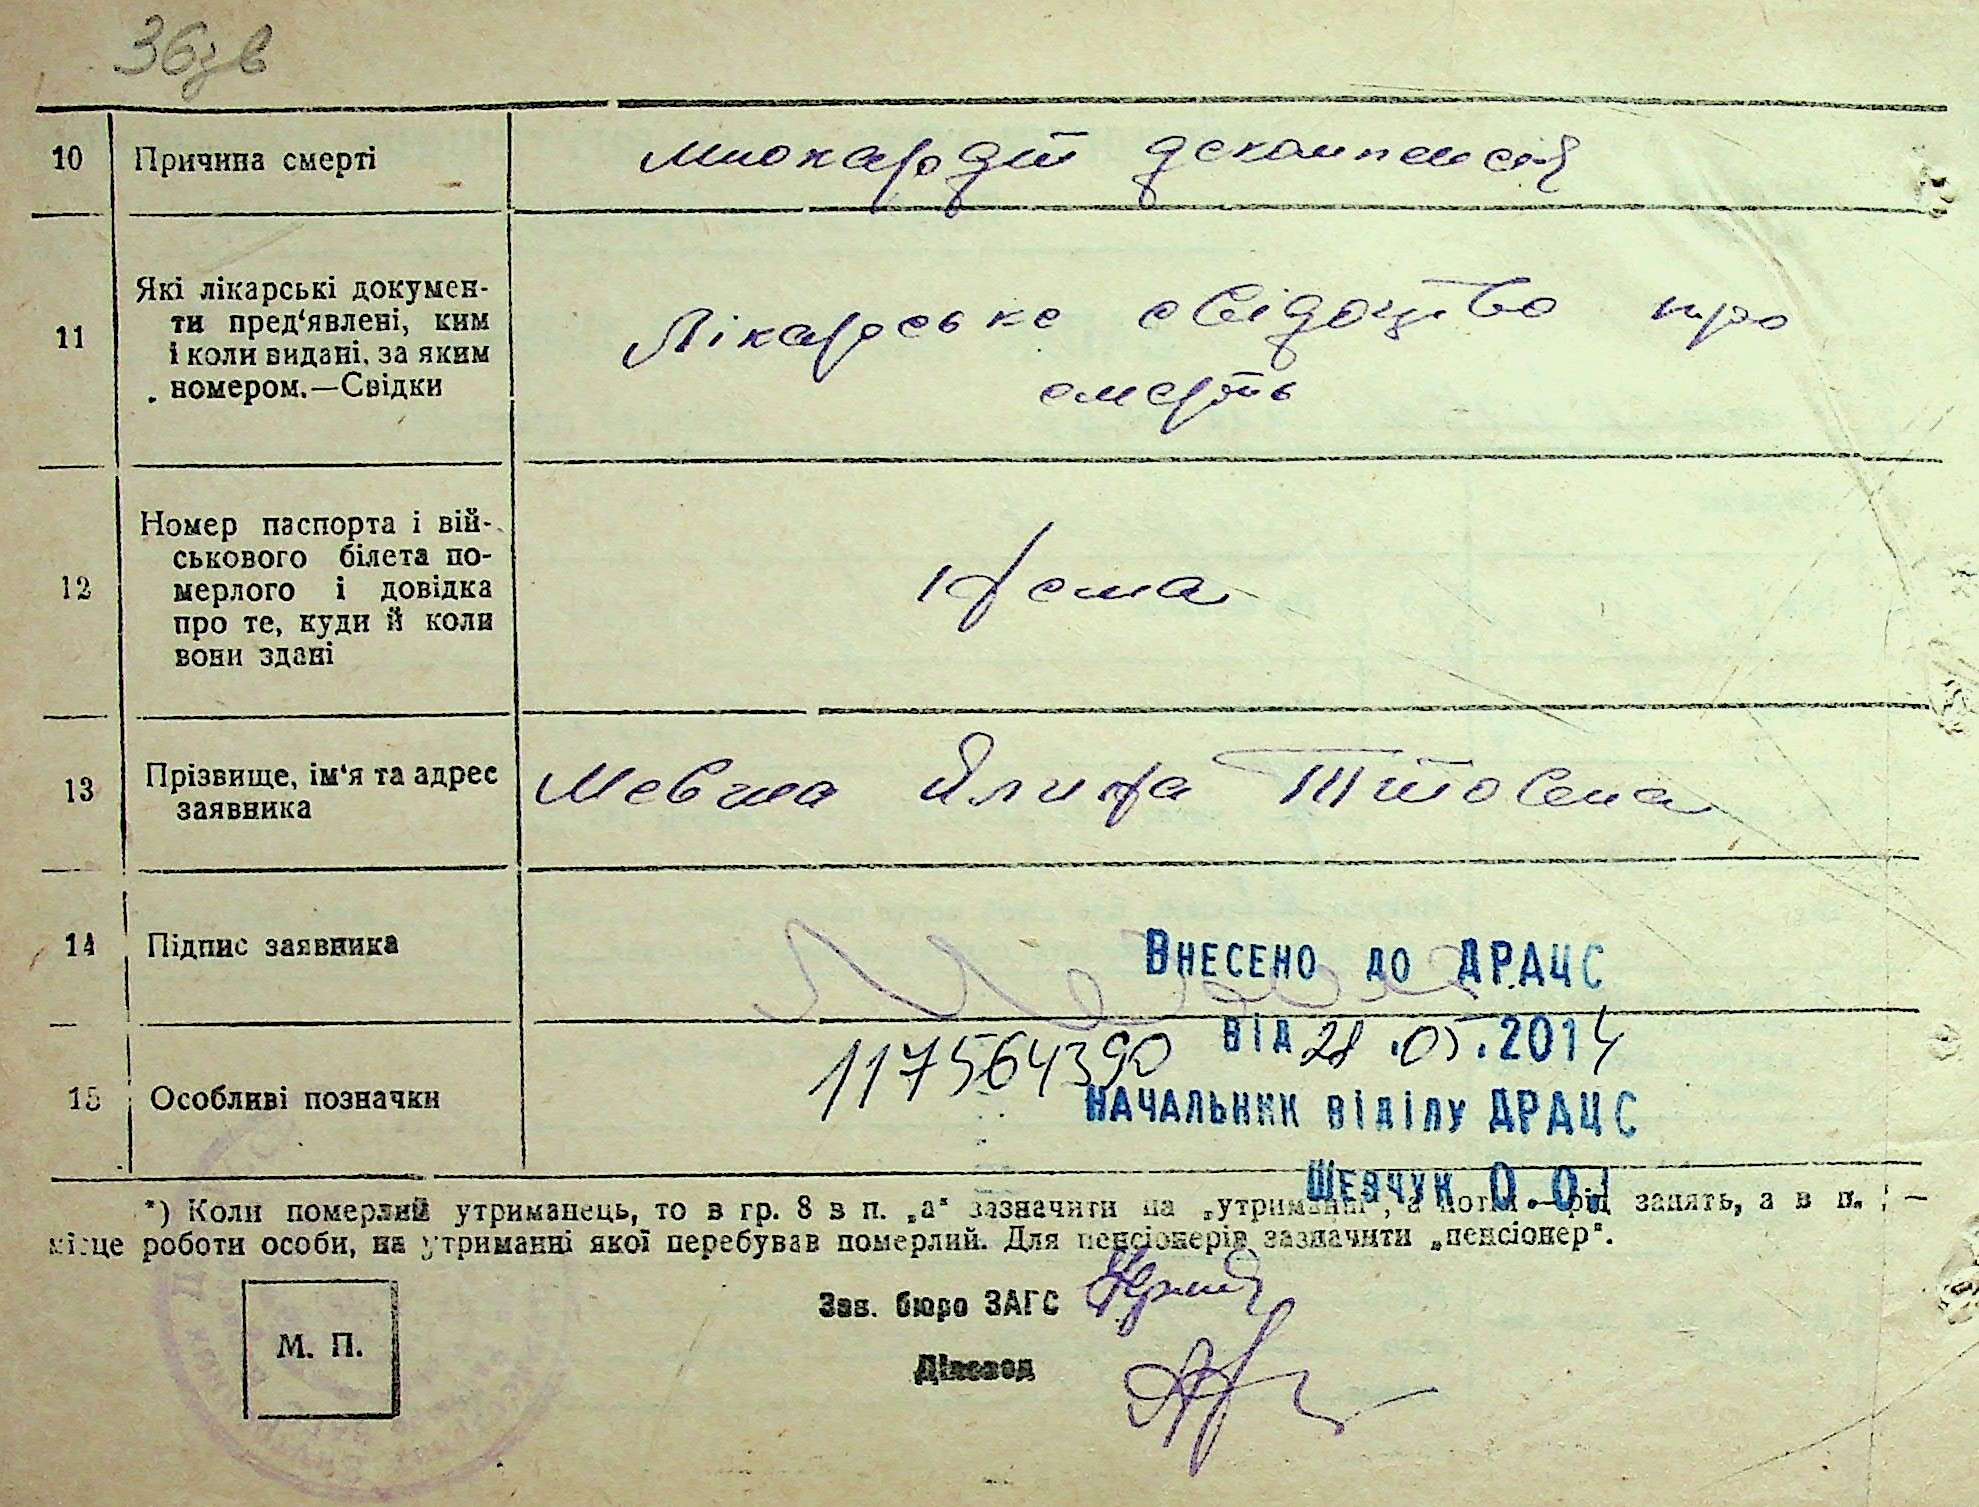 36зв
10 Причина смерті Миокардіт декомпенсія
11 Які лікарські докумен-
ти пред'явлені, ким
і коли видані, за яким
номером.—Свідки
Лікарське свідоцтво про
смерть
12 Номер паспорта і вій-
ськового білета по-
мерлого і довідка
про те, куди й коли
вони здані
Нема
13 Прізвище, ім'я та адрес
заявника
Тітовна
14 Підпис заявника
Внесено до ДРАЦС
від 28.05.2014
15 Особливі позначки 117564390
Начальник відділу ДРАЦС
Шевчук О.О.
*) Коли померлий утриманець, то в гр. 8 в п. „а" зазначити на „утриманні", а потім — рід занять, а в п. —
місце роботи особи, на утриманні якої перебував померлий. Для пенсіонерів зазначити „пенсіонер".
Зав. бюро ЗАГС
М. П.
Діловод